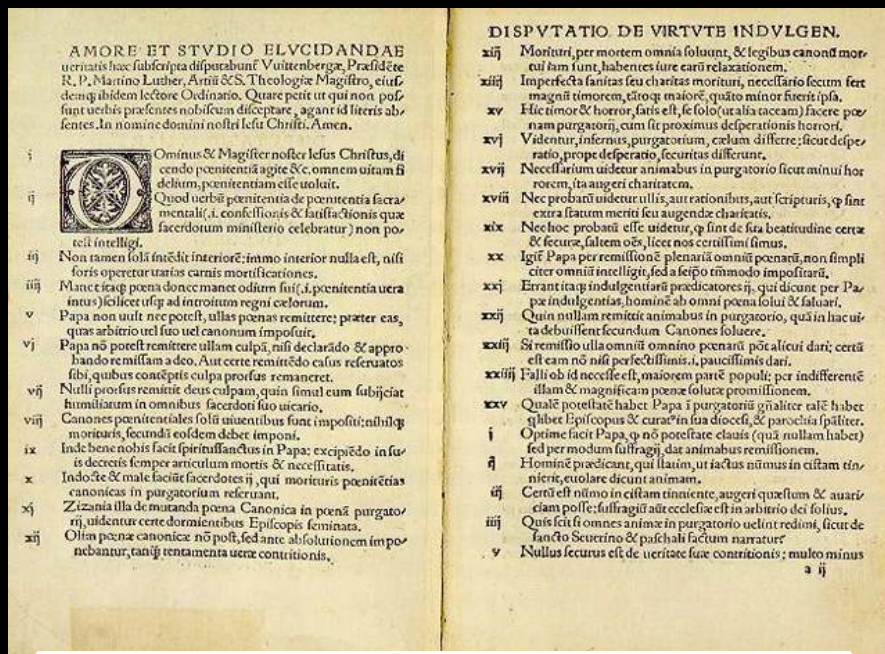 AMORE ET STVDIO ELVCIDANDAE
ueritatis hæc subscripta disputabunť Vuittenbergæ, Præsidēte
R. P. Martino Luther, Artiū & S. Theologiæ Magistro, eius/
demq; ibidem lectore Ordinario. Quare petit ut qui non pos/
sunt uerbis præsentes nobiscum disceptare, agant id literis ab/
sentes. In nomine domini nostri Iesu Christi. Amen.
i Ominus & Magister noster Iesus Christus, di
cendo pœnitentiā agite &c. omnem uitam fi
delium, pœnitentiam esse uoluit.
ij Quod uerbū pœnitentia de pœnitentia sacra/
mentali (.i. confessionis & satisfactionis quæ
sacerdotum ministerio celebratur) non po/
test intelligi.
iij Non tamen solā intēdit interiorē: immo interior nulla est, nisi
foris operetur uarias carnis mortificationes.
iiij Manet itaq; pœna donec manet odium sui (.i. pœnitentia uera
intus) scilicet usq; ad introitum regni cælorum.
v Papa non uult nec potest, ullas pœnas remittere; præter eas,
quas arbitrio uel suo uel canonum imposuit.
vj Papa nō potest remittere ullam culpā, nisi declarādo & appro/
bando remissam a deo. Aut certe remittēdo casus reseruatos
sibi, quibus contēptis culpa prorsus remaneret.
vij Nulli prorsus remittit deus culpam, quin simul eum subijciat
humiliatum in omnibus sacerdoti suo uicario.
viij Canones pœnitentiales solū uiuentibus sunt impositi; nihilq;
morituris, secundū eosdem debet imponi.
ix Inde bene nobis facit spiritussanctus in Papa: excipiēdo in su/
is decretis semper articulum mortis & necessitatis.
x Indocte & male faciūt sacerdotes ij, qui morituris pœnitētias
canonicas in purgatorium reseruant.
xj Zizania illa de mutanda pœna Canonica in pœnā purgato/
rij, uidentur certe dormientibus Episcopis seminata.
xij Olim pœnæ canonicæ nō post, sed ante absolutionem impo/
nebantur, tanq̄ tentamenta ueræ contritionis.
DISPVTATIO DE VIRTVTE INDVLGEN.
xiij Morituri, per mortem omnia soluunt, & legibus canonū mor/
tui iam sunt, habentes iure earū relaxationem.
xiiij Imperfecta sanitas seu charitas morituri, necessario secum fert
magnū timorem, tātoq; maiorē, quāto minor fuerit ipsa.
xv Hic timor & horror, satis est, se solo (ut alia taceam) facere pœ/
nam purgatorij, cum sit proximus desperationis horrori.
xvj Videntur, infernus, purgatorium, cælum differre; sicut despe/
ratio, prope desperatio, securitas differunt.
xvij Necessarium uidetur animabus in purgatorio sicut minui hor
rorem, ita augeri charitatem.
xviij Nec probatū uidetur ullis, aut rationibus, aut scripturis, q̄ sint
extra statum meriti seu augendæ charitatis.
xix Nec hoc probatū esse uidetur, q̄ sint de sua beatitudine certæ
& securæ, saltem oēs, licet nos certissimi simus.
xx Igiť Papa per remissionē plenariā omniū pœnarū, non simpli
citer omniū intelligit, sed a seipō tm̄modo impositarū.
xxj Errant itaq; indulgentiarū prædicatores ij, qui dicunt per Pa/
pæ indulgentias, hominē ab omni pœna solui & saluari.
xxij Quin nullam remittit animabus in purgatorio, quā in hac ui/
ta debuissent secundum Canones soluere.
xxiij Si remissio ulla omniū omnino pœnarū pōt alicui dari; certū
est eam nō nisi perfectissimis .i. paucissimis dari.
xxiiij Falli ob id necesse est, maiorem partē populi; per indifferentē
illam & magnificam pœnæ solutæ promissionem.
xxv Qualē potestatē habet Papa ī purgatoriū gn̄aliter talē habet
q̄libet Episcopus & curat⁹ in sua diocesi, & parochia sp̄aliter.
j Optime facit Papa, q̄ nō potestate clauis (quā nullam habet)
sed per modum suffragij, dat animabus remissionem.
ij Hominē prædicant, qui statim, ut iactus nūmus in cistam tin/
nierit, euolare dicunt animam.
iij Certū est nūmo in cistam tinniente, augeri quæstum & auari/
ciam posse; suffragiū aūt ecclesiæ est in arbitrio dei solius.
iiij Quis scit si omnes animæ in purgatorio uelint redimi, sicut de
sancto Seuerino & paschali factum narratur?
v Nullus securus est de ueritate suæ contritionis; multo minus
a ij